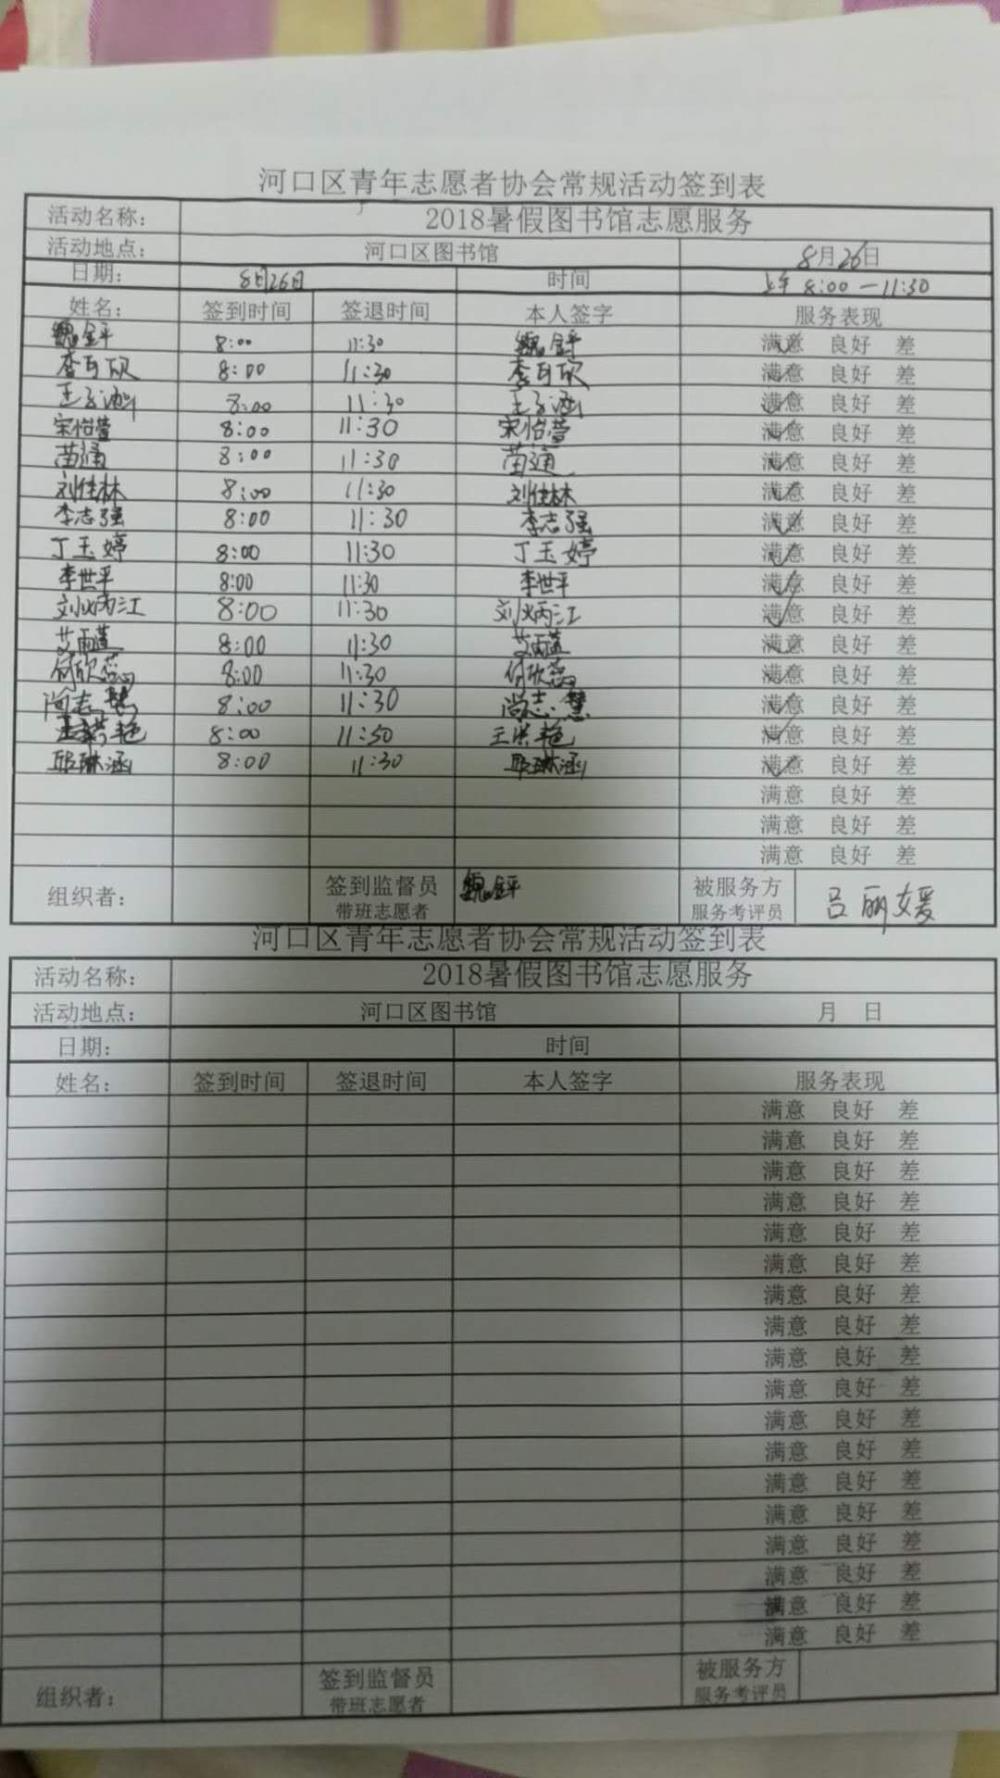 河口区青年志愿者协会常规活动签到表
活动名称： 2018暑假图书馆志愿服务
活动地点： 河口区图书馆 8月26日
日期： 8月26日 时间 上午 8:00 — 11:30
姓名： 签到时间 签退时间 本人签字 服务表现
8:00 11:30 满意 良好 差
李可欣 8:00 11:30 李可欣 满意 良好 差
王子涵 8:00 11:30 王子涵 满意 良好 差
宋怡萱 8:00 11:30 宋怡萱 满意 良好 差
苗通 8:00 11:30 苗通 满意 良好 差
刘佳林 8:00 11:30 刘佳林 满意 良好 差
李志强 8:00 11:30 李志强 满意 良好 差
丁玉婷 8:00 11:30 丁玉婷 满意 良好 差
李世平 8:00 11:30 李世平 满意 良好 差
刘炳江 8:00 11:30 刘炳江 满意 良好 差
艾雨莲 8:00 11:30 艾雨莲 满意 良好 差
何欣蕊 8:00 11:30 何欣蕊 满意 良好 差
尚志慧 8:00 11:30 尚志慧 满意 良好 差
8:00 11:30 满意 良好 差
邱琳涵 8:00 11:30 邱琳涵 满意 良好 差
满意 良好 差
满意 良好 差
满意 良好 差
组织者： 签到监督员 被服务方 吕丽媛
带班志愿者 服务考评员
河口区青年志愿者协会常规活动签到表
活动名称： 2018暑假图书馆志愿服务
活动地点： 河口区图书馆 月 日
日期： 时间
姓名： 签到时间 签退时间 本人签字 服务表现
满意 良好 差
满意 良好 差
满意 良好 差
满意 良好 差
满意 良好 差
满意 良好 差
满意 良好 差
满意 良好 差
满意 良好 差
满意 良好 差
满意 良好 差
满意 良好 差
满意 良好 差
满意 良好 差
满意 良好 差
满意 良好 差
满意 良好 差
满意 良好 差
组织者： 签到监督员 被服务方
带班志愿者 服务考评员